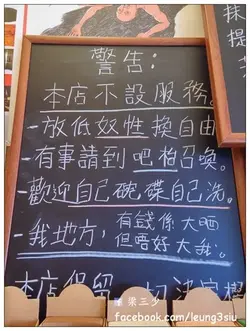 警告：
本店不設服務。
-放低奴性換自由
-有事請到吧枱召喚。
-歡迎自己碗碟自己洗。
-我地方，有錢係大晒
但唔好大我。
本店保留一切決定權
梁三少
facebook.com/leung3siu